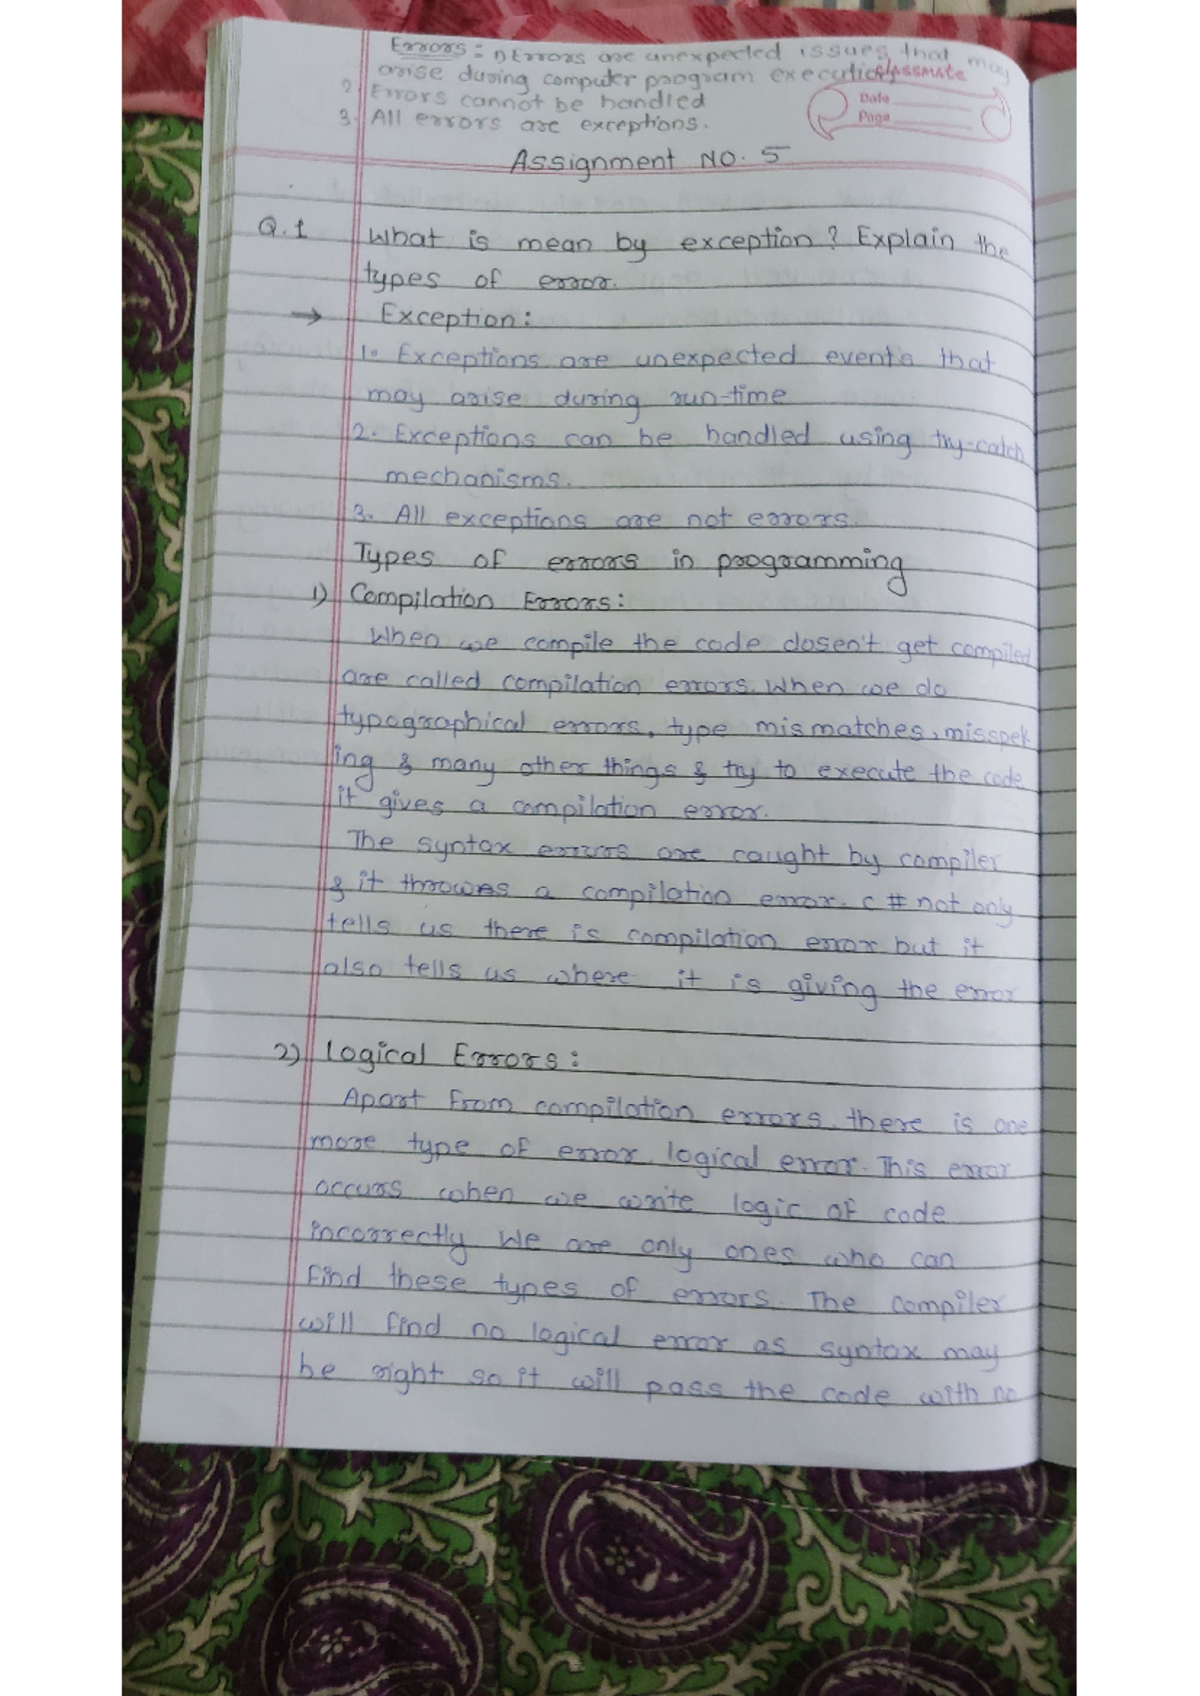 Errors: 1) Errors are unexpected issues that may
arise during computer program execution
classmate
2. Errors cannot be handled
Date
3. All errors are exceptions.
Page
Assignment No. 5
Q.1 What is mean by exception? Explain the
types of error.
→ Exception:
1. Exceptions are unexpected events that
may arise during run-time
2. Exceptions can be handled using try-catch
mechanisms.
3. All exceptions are not errors.
Types of errors in programming
1) Compilation Errors:
When we compile the code dosen't get compiled
are called compilation errors. When we do
typographical errors, type mismatches, misspel
ing & many other things & try to execute the code
it gives a compilation error.
The syntax errors are caught by compiler
& it throwes a compilation error. C # not only
tells us there is compilation error but it
also tells us where it is giving the error
2) Logical Errors:
Apart from compilation errors, there is one
more type of error, logical error. This error
occurs when we write logic of code
incorrectly We are only ones who can
find these types of errors. The compiler
will find no logical error as syntax may
be right so it will pass the code with no